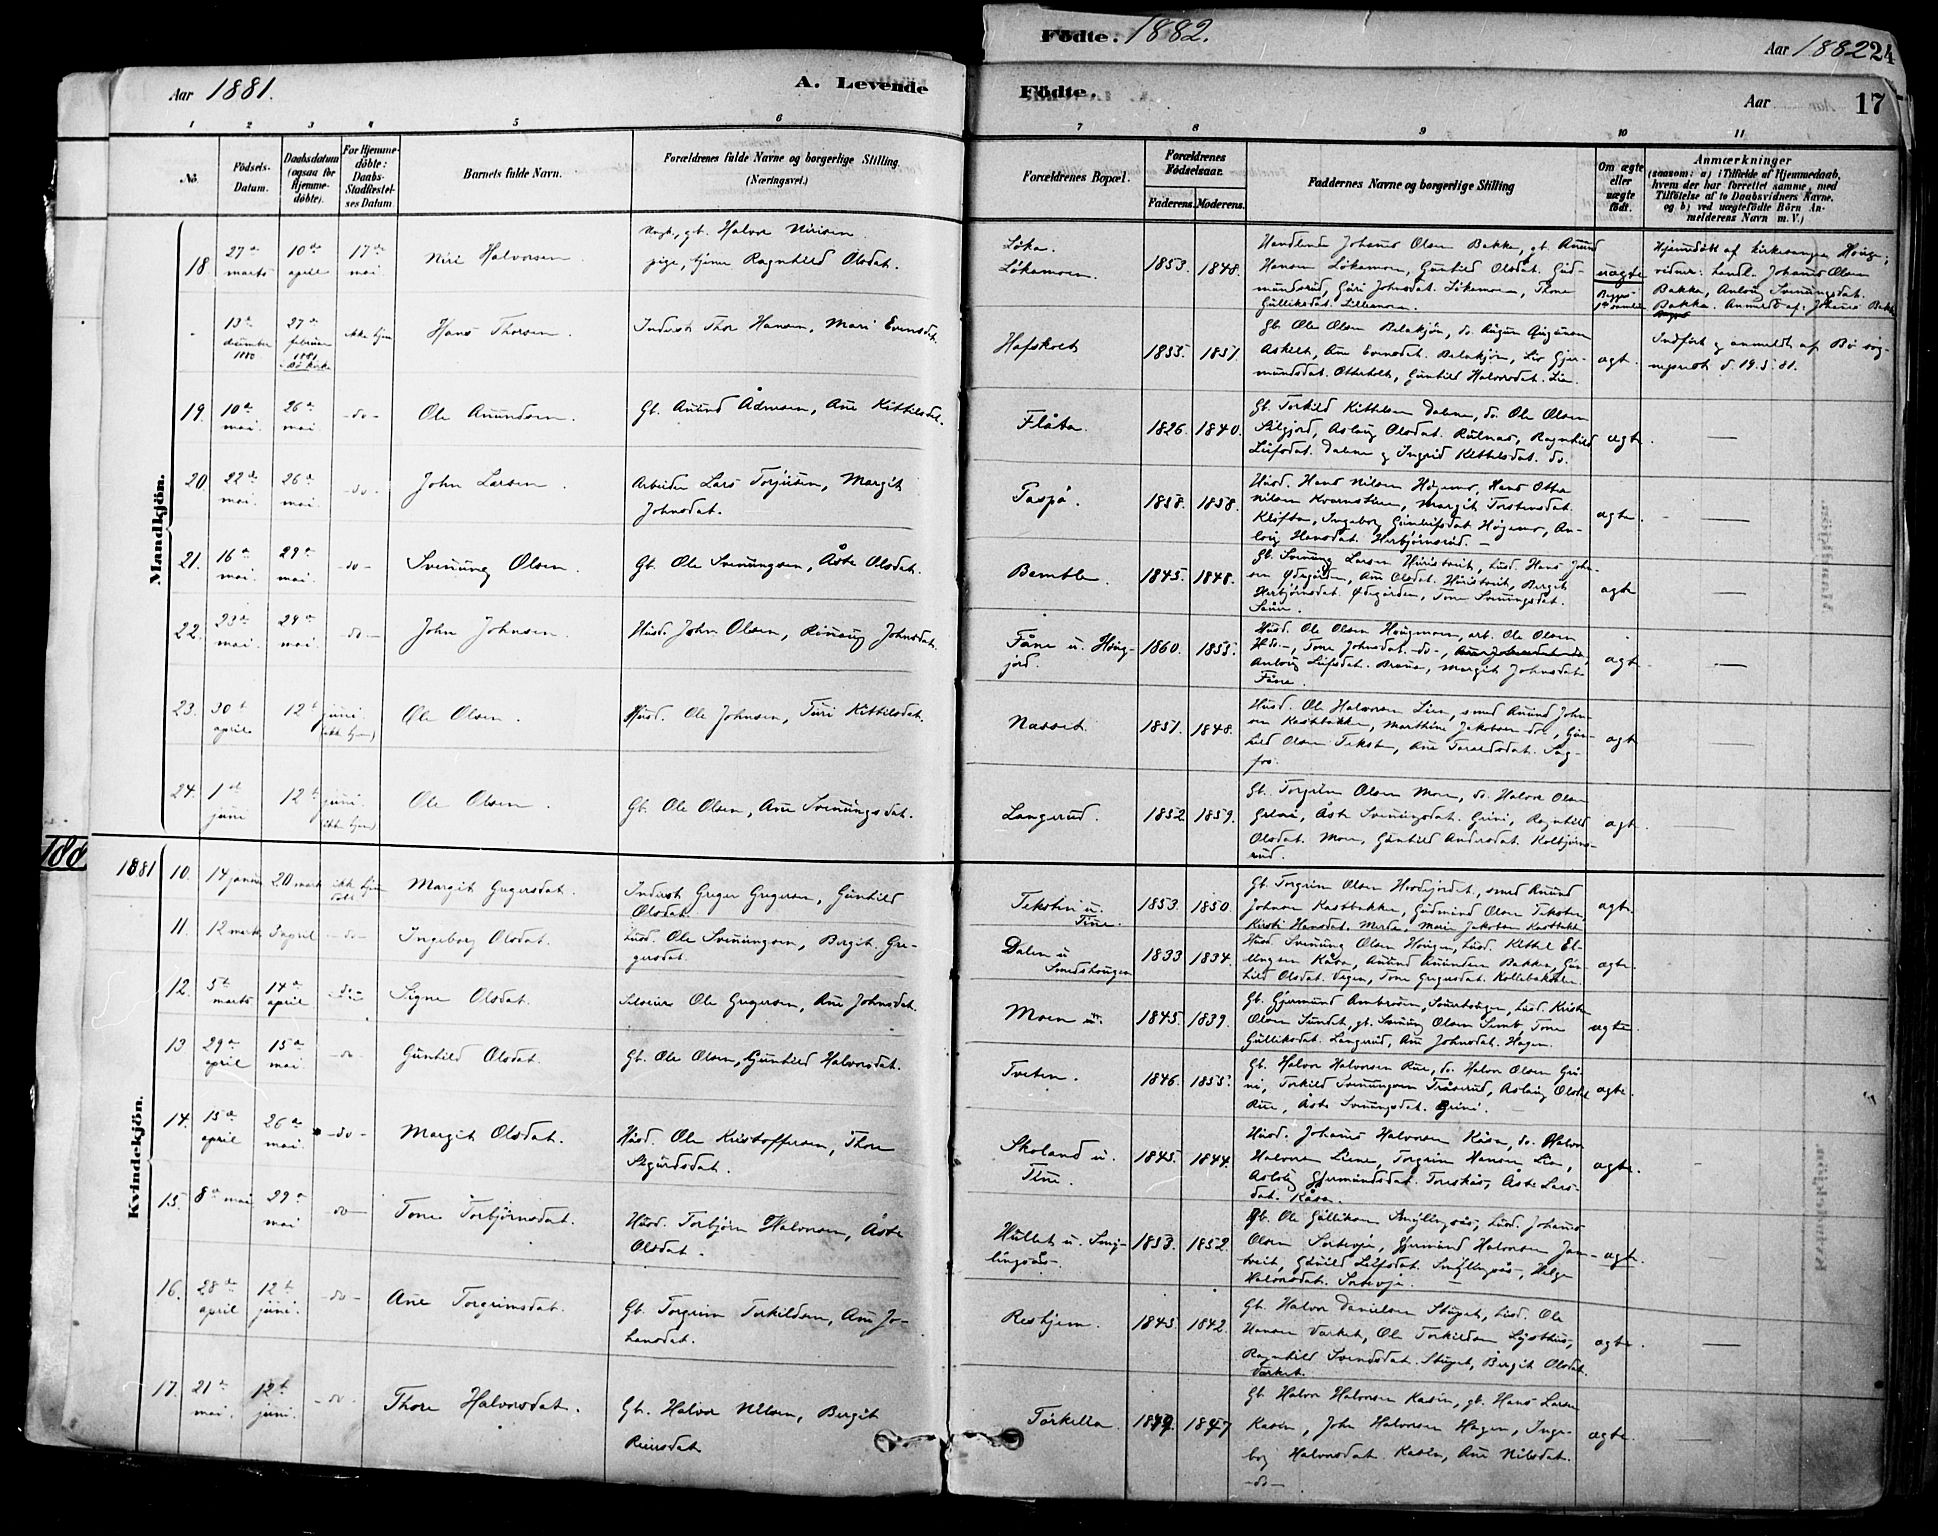 Födte. 1882.
Aar 1882 24
Aar 1881.
A. Levende
Födte.
Aar
17
1 2 3 4 5 6 7 8 9 10 11
No.
Födsels-
Datum.
Daabsdatum
(ogsaa for
Hjemme-
döbte).
For Hjemme-
döbte:
Daabs-
Stadfæstel-
ses Datum.
Barnets fulde Navn.
Forældrenes fulde Navne og borgerlige Stilling
(Næringsvei.)
Forældrenes Bopæl.
Forældrenes
Födselsaar.
Faderens. Moderens.
Faddernes Navne og borgerlige Stilling
Om ægte
eller
uægte
födt.
Anmærkninger
(saasom: a) i Tilfælde af Hjemmedaab,
hvem der har forrettet samme, med
Tilföielse af to Daabsvidners Navne,
og b) ved uægtefödte Börn An-
melderens Navn m. V.)
Mandkjön.
18 27de marts 10de april 17de mai Niri Halvorsen
Ungk., gb. Halvor Nirisen
pige, tjener Ragnhild Olsdat.
Löka
Lökamoen.
1853. 1848.
Handlende Johans Olsen Bakka, gb. Anund
Hansen Lökamoen, Gunhild Olsdat. Gud-
mundsrud, Guri Johnsdat. Lökamoen, Thone
Gulliksdat. Lillemoen
uægte
Hjemdöbt af kirkesanger Houge,
vidner: Landh. Johans Olsen
Bakka, Aslaug Svenungsdat.
Bakka. Anmeldt af: Johans Bakka
- 13de december 1880 27de februar 1881 Bö kirke ikke hjem Hans Thorsen
Inderst Thor Hansen, Mari Evensdat.
Hafskolt 1855. 1857.
Gb. Ole Olsen Balakjön, do. Augun Augunsen
Askilt, Ane Evensdat. Balakjön, Liv Gjer-
mundsdat. Otterholt, Gunhild Halvorsdat. Lien.
ægt.
Indfört og anmeldt af Bö sog-
neprest d. 19. 5. 81.
19. 10de mai. 26de mai -do- Ole Anundsen.
Gb. Anund Admsen, Ane Kittilsdat.
Flåta. 1826. 1840.
Gb. Torkild Kittelsen Dalen, do. Ole Olsen
Silgjord, Aslaug Olsdat. Rulnas, Ragnhild
Leifsdat. Dalen og Ingrid Kittelsdat. do.
ægte. —
20. 22de mai. 26de mai. -do- John Larsen
Arbeider Lars Torjusen, Margit
Johnsdat.
Paspö. 1858. 1858.
Husd. Hans Nilsen Högemo, Hans Otter
Nilsen Kvernstien, Margit Torstensdat.
Klöfta, Ingeborg Gunleifsdat. Högemo, An-
laug Hansdat. Herbjörnsrud. —
ægte. —
21. 16de mai. 29de mai. -do- Svenung Olsen.
Gb. Ole Svenungsen, Åste Olsdat.
Bemble. 1845. 1848.
Gb. Svenung Larsen Huristveit, Lusd. Hans John-
sen Ödegården, Ane Olsdat. Huristveit, Bergit
Herbjörnsdat. Ödegården, Tone Svenungsdat.
ægte —
22. 23de mai. 29de mai. -do- John Johnsen
Husd. John Olsen, Rönnaug Johnsdat.
Fåne u. Houg-
jord.
1860. 1855.
Husd. Ole Olsen Hougmoen, arb. Ole Olsen
-do-, Tone Johnsdat. -do-,
Anlaug Leifsdat. Brauna, Margit Johnsdat.
Fåne.
ægt —
23. 30te april 12te juni. (ikke hjem) Ole Olsen.
Husd. Ole Johnsen, Turi Kittilsdat.
Nasset. 1851. 1848.
Husd. Ole Halvorsen Lien, smed Anund John-
sen Kastbakka, Marthine Jakobsen do., Gun-
hild Olsen Teksten, Ane Toraldsdat. Sag-
fos.
ægt —
24. 1ste juni 12te juni. (ikke hjem) Ole Olsen.
Gb. Ole Olsen, Ane Svenungsdat.
Langerud. 1852 1859.
Gb. Torgrim Olsen Moen, do. Halvor Olsen
Grini, Åste Svenungsdat. Grini, Ragnhild
Olsdat. Moen, Gunhild Andersdat. Kolbjörns-
rud.
ægt. —
188
1881
Kvindekjön.
10. 14 januar 20 marts ikke hjem döbt Margit Gregersdat.
Inderst Greger Gregersen, Gunhild
Olsdat.
Teksten u.
Tine.
1853. 1850.
Gb. Torgrim Olsen Hovdejordet, smed Anund
Johnsen Kastbakka, Gudmund Olsen Teksten,
Kirsti Hansdat. Merde, Maren Jakobsen Kastbakka
ægte.
11. 12 marts 3 april -do- Ingeborg Olsdat.
Lusd. Ole Svenungsen, Bergit Gre-
gersdat.
Dalen u
Smedshougen
1833 1834.
Husd. Svenung Olsen Hougen, Lusd. Kittel El-
lingsen Kåsa, Anund Anundsen Bakka, Gun-
hild Olsdat. Vegen, Tone Gregersdat. Kollebakdalen.
ægte.
12. 5te marts 14de april -do- Signe Olsdat.
Selveier Ole Gregersen, Ane Johnsdat.
Moen u. 1845. 1839.
Gb. Gjermund Ambrosen, Sourhouger, Lusd. Kristen
Olsen Sundet, gb. Svenung Olsen Semb, Tone
Gulliksdat. Langerud, Ane Johnsdat. Hagen.
ægte.
13 29de april 15de mai. -do- Gunhild Olsdat.
Gb. Ole Olsen, Gunhild Halvorsdat.
Tveten. 1846. 1855.
Gb. Halvor Halvorsen Rue, do. Halvor Olsen Gri-
ni, Torkild Svenungsen Tråserud, Aslaug Olsdat
Rue, Åste Svenungsdat. Grini.
ægte.
14. 15de april 26de mai. -do- Margit Olsdat.
Husd. Ole Kristoffersen, Thore
Sigurdsdat.
Skoland u.
Tine.
1845. 1844.
Husd. Johans Halvorsen Kåsa, do. Halvor
Halvorsen Liene, Torgrim Hansen Lia,
Aslaug Gjermundsdat. Toreskås, Åste Lars-
dat. Kåsa.
ægte. -
15. 8de mai 29de mai -do- Tone Torbjörnsdat.
Husd. Torbjörn Halvorsen, Åste
Olsdat.
Hullet u. Smy-
lingsås.
1853. 1852.
Gb. Ole Gulliksen Smyllingsås, Lusd. Johans
Olsen Sortevje, Gjermund Halvorsen Jan-
tveit, Gunild Leifsdat. Smyllingsås, Helge
Halvorsdat. Sortevje. —
ægte. —
16. 28de april 12te juni. -do- Ane Torgrimsdat.
Gb. Torgrim Torkildsen, Ane Jo-
hansdat.
Reshjem. 1845. 1842.
Gb. Halvor Danielsen Stupet, Lusd. Ole
Hansen Varket, Ole Torkildsen Lysthus,
Ragnhild Svendsdat. Stupet, Bergit Olsdat
Varket.
ægte. —
17. 21de mai. 12te juni. -do Thore Halvorsdat.
Gb. Halvor Nilsen, Bergit
Reiersdat
Torkella 1849. 1847
Gb. Halvor Halvorsen Kasin, gb. Hans Larsen
Kasin, John Halvorsen Hagen, Inge-
borg Halvorsdat. Kasin, Ane Nilsdat.
-do-
ægte. —